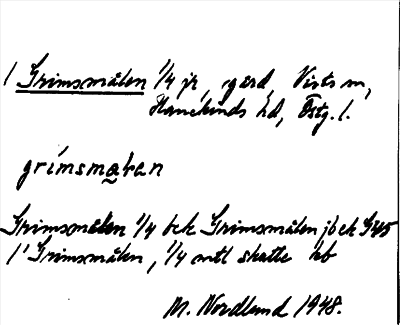 1 Grimsmålen 1/4 jr, gård, Vists sn,
Hanekinds hd, Östg. l.
grímsmaₒlan
Grimsmålen 1/4 bek Grimsmålen jb ek
1 Grimsmålen, 1/4 mtl skatte hb
M. Nordlund 1948.